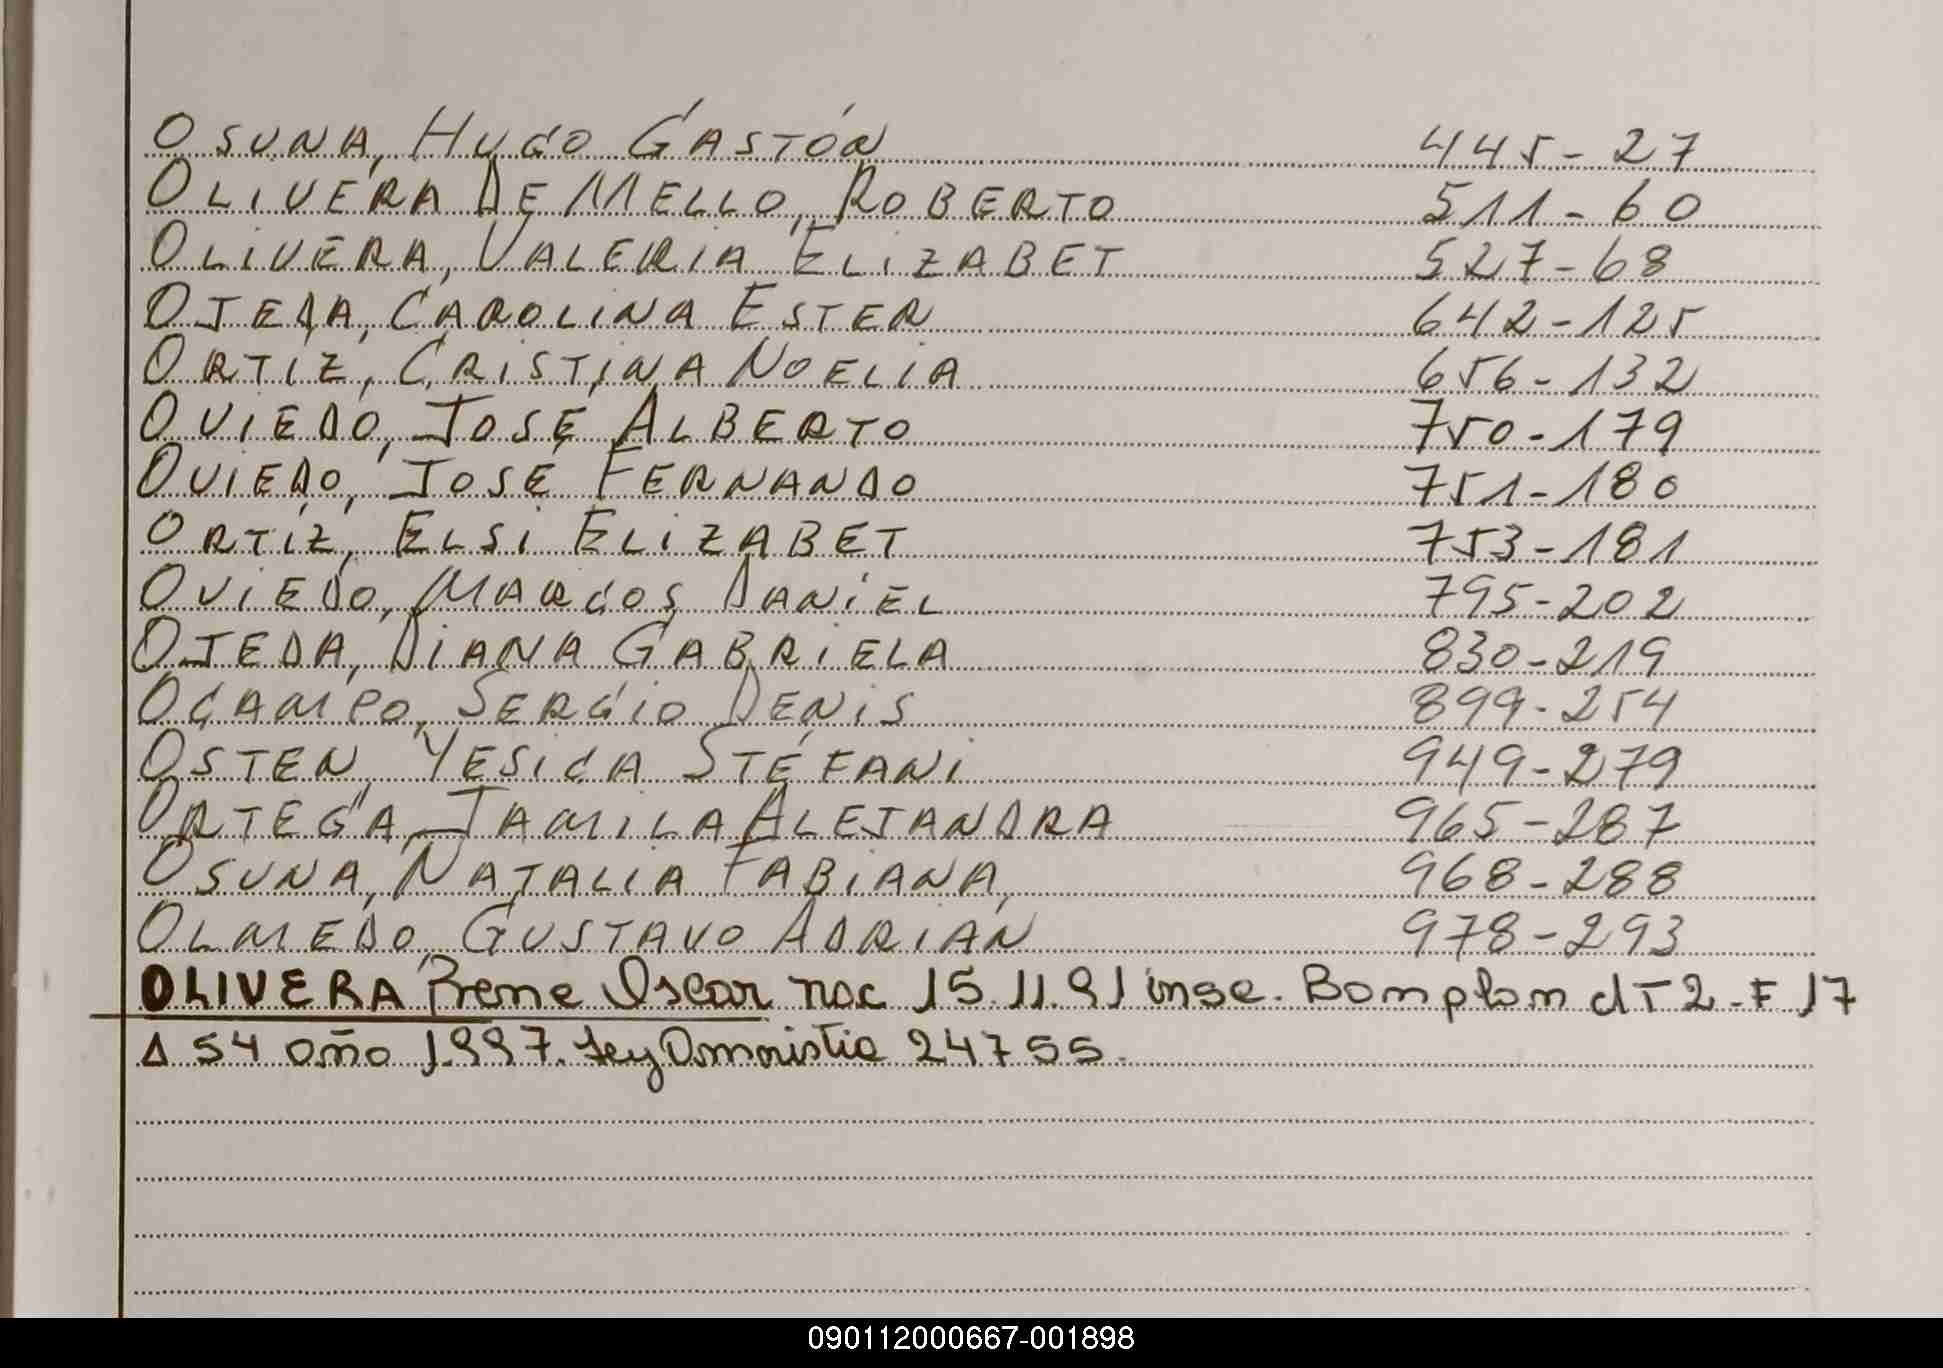 OSUNA, HUGO GASTÓN 445-27
OLIVERA DE MELLO, ROBERTO 511-60
OLIVERA, VALERIA ELIZABET 527-68
OJEDA, CAROLINA ESTER 642-125
ORTIZ, CRISTINA NOELIA 656-132
OVIEDO, JOSÉ ALBERTO 750-179
OVIEDO, JOSÉ FERNANDO 751-180
ORTÍZ, ELSI ELIZABET 753-181
OVIEDO, MARCOS DANIEL 795-202
OJEDA, DIANA GABRIELA 830-219
OCAMPO, SERGIO DENIS 899-254
OSTEN, YESICA STÉFANI 949-279
ORTEGA, JAMILA ALEJANDRA 965-287
OSUNA, NATALIA FABIANA, 968-288
OLMEDO, GUSTAVO ADRIÁN 978-293
OLIVERA Rene Oscar nac 15.11.91 insc. Bomplan dT 2-F 17
Δ 54 año 1.997. Ley Amnistia 24755.
090112000667-001898